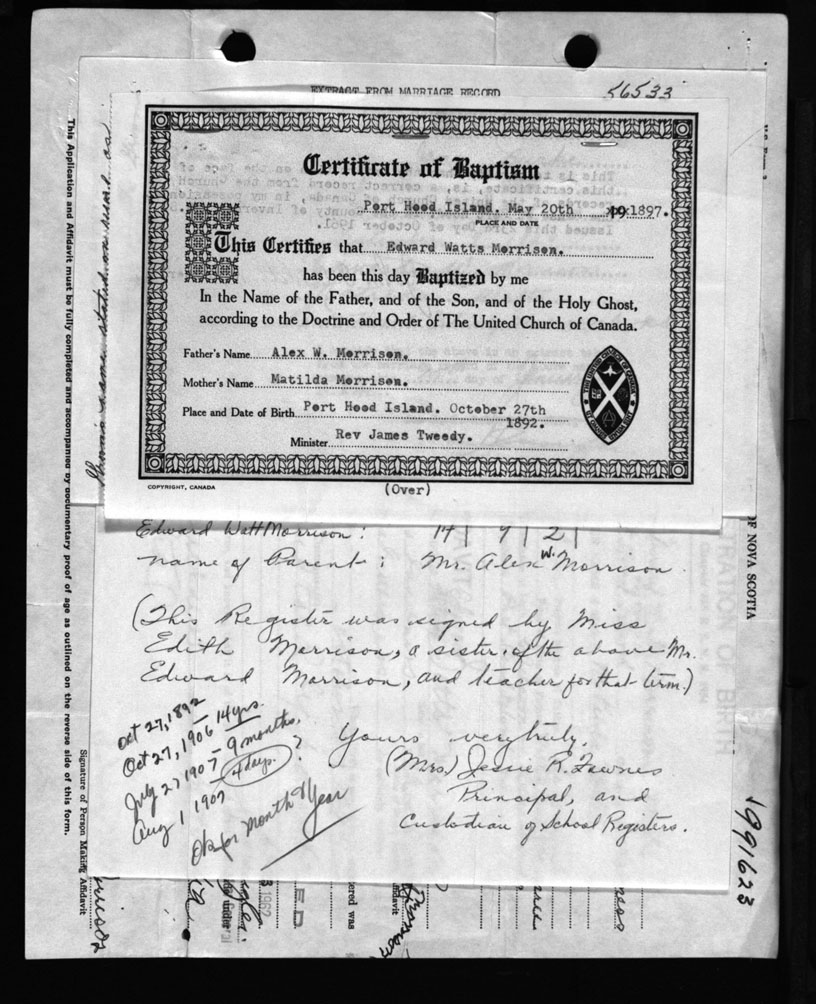 EXTRACT FROM MARRIAGE RECORD
56533
Certificate of Baptism
Port Hood Island. May 20th 1897.
PLACE AND DATE
This Certifies that Edward Watts Morrison.
has been this day Baptized by me
In the Name of the Father, and of the Son, and of the Holy Ghost,
according to the Doctrine and Order of The United Church of Canada.
Father's Name Alex W. Morrison.
Mother's Name Matilda Morrison.
Place and Date of Birth Port Hood Island. October 27th
1892.
Minister Rev James Tweedy.
COPYRIGHT, CANADA
(Over)
Edward Watt Morrison: 14 | 9 | 2 |
Name of Parent: Mr. Alex W. Morrison.
(This Register was signed by Miss
Edith Morrison, a sister of the above Mr.
Edward Morrison, and teacher for that term.)
Yours very truly,
(Mrs.) Jessie R. Fawnes
Principal, and
Custodian of School Registers.
Oct 27, 1892
Oct 27, 1906 14 yrs.
July 27 1907 - 9 months.
4 days. ?
Aug 1 1907
OK for Month & Year
This Application and Affidavit must be fully completed and accompanied by documentary proof of age as outlined on the reverse side of this form.
Signature of Person Making Affidavit
name stated on
OF NOVA SCOTIA
TRATION OF BIRTH
1991623
1962
under
ED
ered was